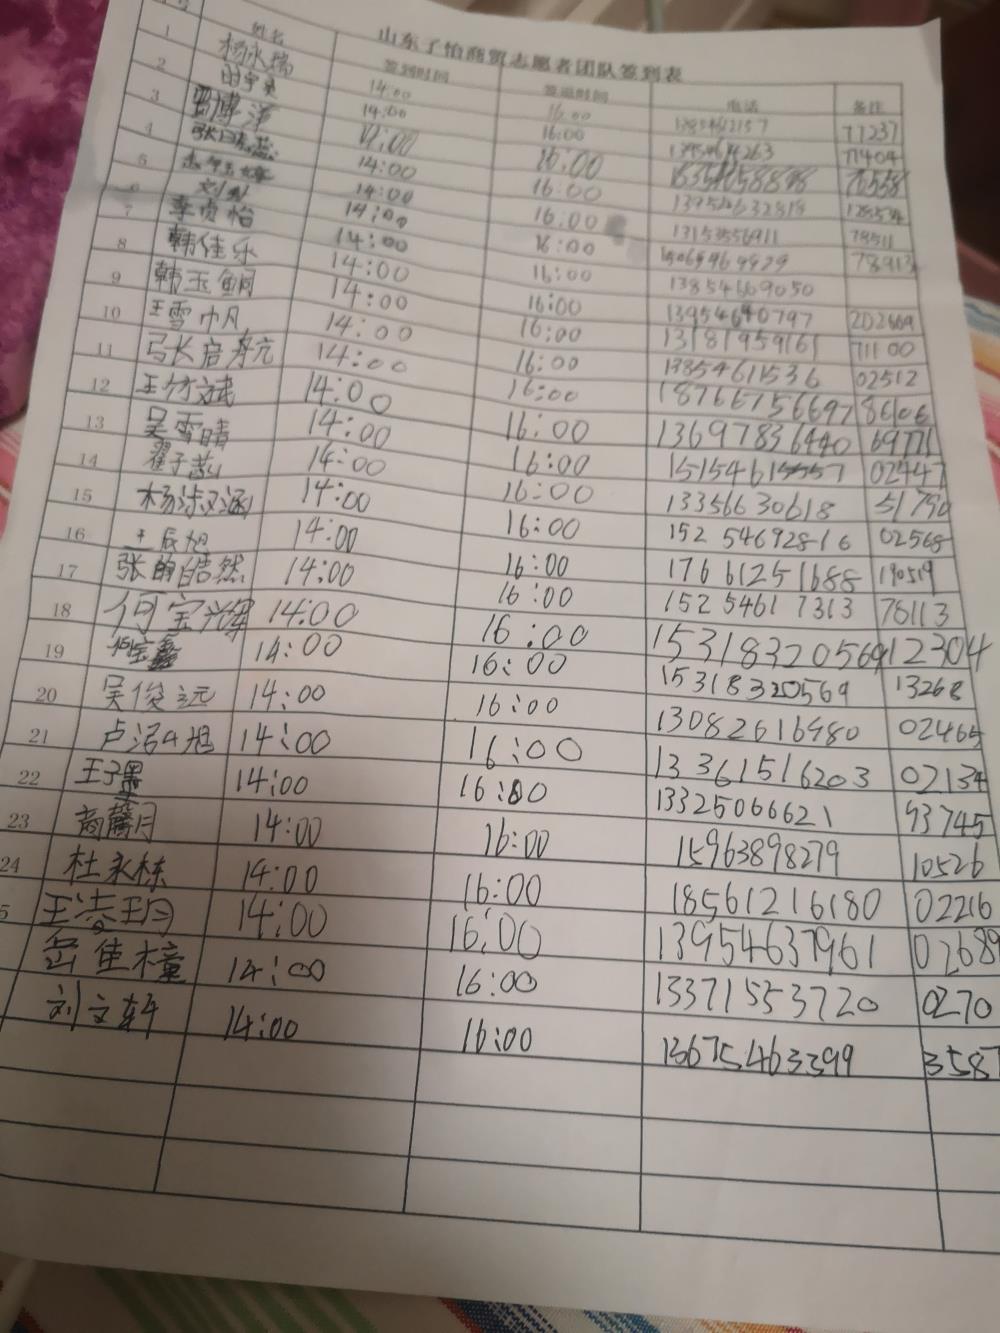 山东子怡商贸志愿者团队签到表
姓名 签到时间 签退时间 电话 备注
1 杨永瑞 14:00 16:00 77237
2 14:00 16:00 71404
3 14:00 16:00
4 14:00 16:00 13954632818
5 14:00 16:00 13153556911 78511
6 14:00 16:00 78913
7 李贞怡 14:00 16:00 13854669050
8 韩佳乐 14:00 16:00 13954640797
9 韩玉 14:00 16:00 13181959161 71100
10 王雪帆 14:00 16:00 13854611536 02512
11 张启航 14:00 16:00 18766756697 86106
12 14:00 16:00 13697836440 69771
13 吴雪晴 14:00 16:00 02447
14 翟子 14:00 16:00 13356630618 51790
15 14:00 16:00 15254692816 02568
16 王辰旭 14:00 16:00 17661251688 190519
17 张皓然 14:00 16:00 15254617313 78113
18 何宝辉 14:00 16:00 15318320569 12304
19 14:00 16:00 15318320569 13268
20 吴俊远 14:00 16:00 13082616980 02465
21 14:00 16:00 13361516203 02134
22 14:00 16:00 13325066621 93745
23 商馨月 14:00 16:00 15963898279 10526
24 杜永栋 14:00 16:00 18561216180 02216
5 14:00 16:00 13954637961 02689
岳佳橦 14:00 16:00 13371553720 0270
刘文轩 14:00 16:00 13675463399 3587